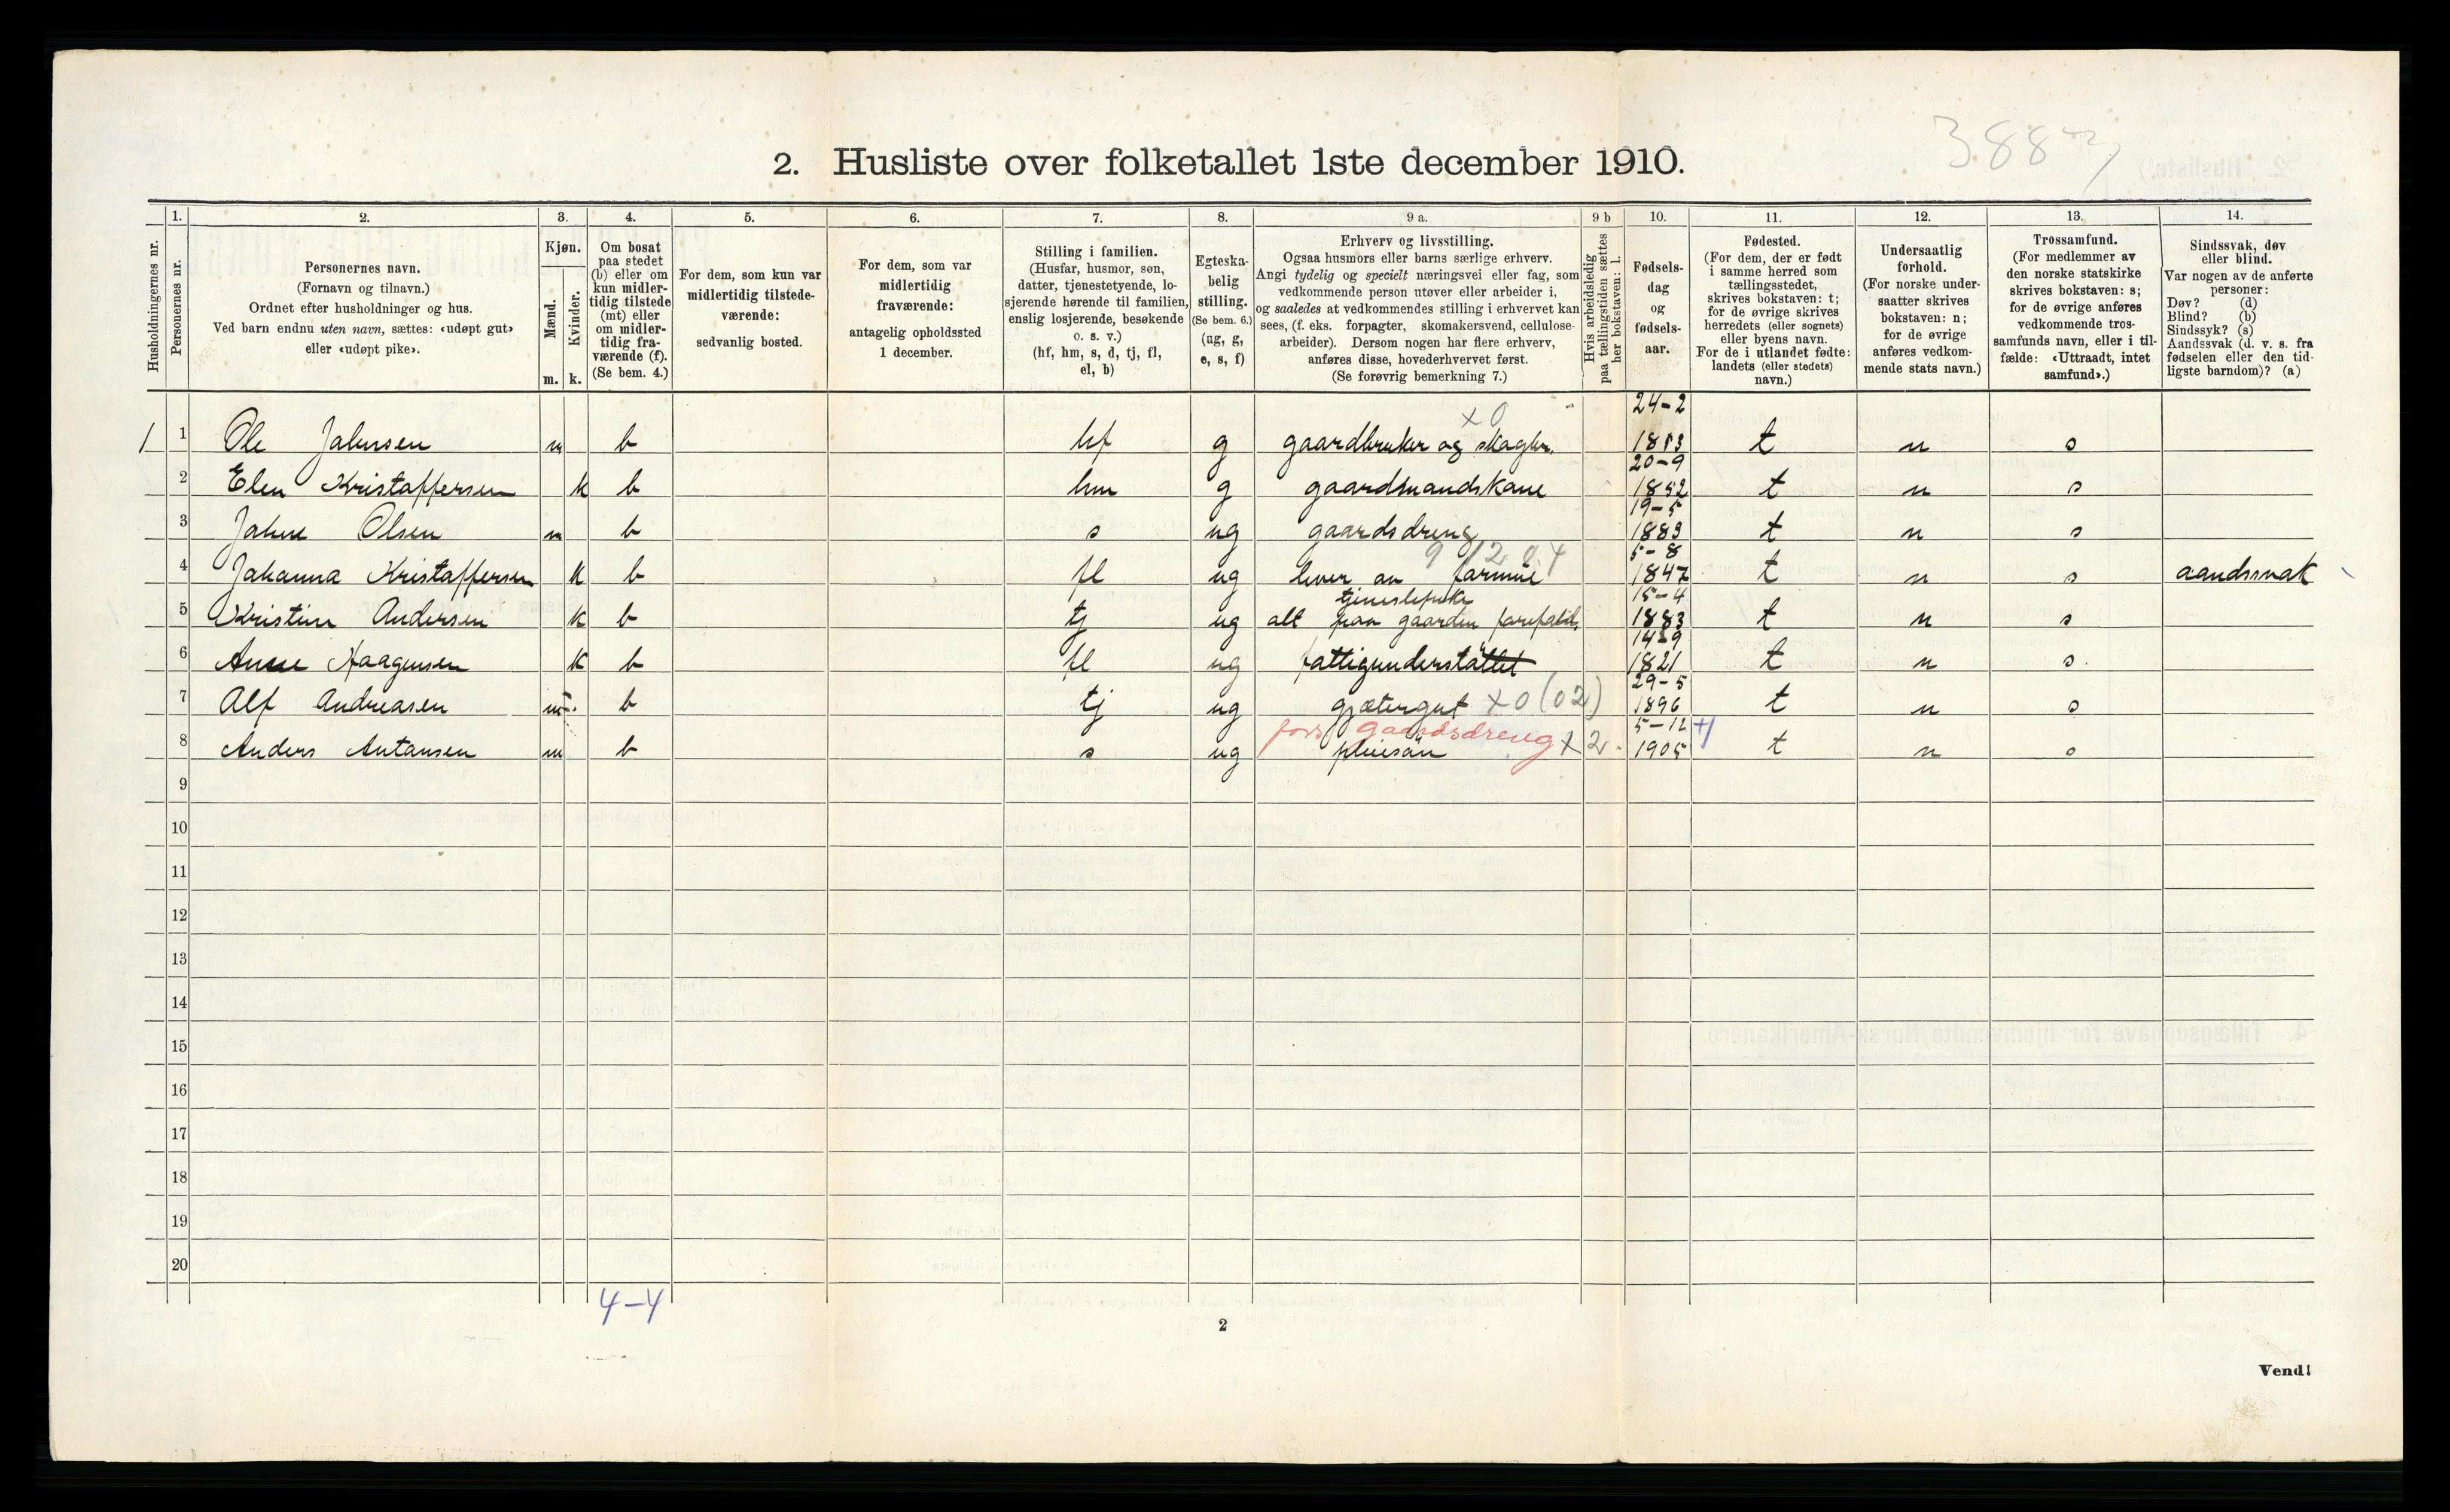 2. Husliste over folketallet 1ste december 1910.
1. 2. 3. 4. 5. 6. 7. 8. 9 a. 9 b 10. 11. 12. 13. 14.
Husholdningernes nr.
Personernes nr.
Personernes navn.
(Fornavn og tilnavn.)
Ordnet efter husholdninger og hus.
Ved barn endnu uten navn, sættes: «udøpt gut»
eller «udøpt pike».
Kjøn.
Mænd.
Kvinder.
m. k.
Om bosat
paa stedet
(b) eller om
kun midler-
tidig tilstede
(mt) eller
om midler-
tidig fra-
værende (f).
(Se bem. 4.)
For dem, som kun var
midlertidig tilstede-
værende:
sedvanlig bosted.
For dem, som var
midlertidig
fraværende:
antagelig opholdssted
1 december.
Stilling i familien.
(Husfar, husmor, søn,
datter, tjenestetyende, lo-
sjerende hørende til familien,
enslig losjerende, besøkende
o. s. v.)
(hf, hm, s, d, tj, fl,
el, b)
Egteska-
belig
stilling.
(Se bem. 6.)
(ug, g,
e, s, f)
Erhverv og livsstilling.
Ogsaa husmors eller barns særlige erhverv.
Angi tydelig og specielt næringsvei eller fag, som
vedkommende person utøver eller arbeider i,
og saaledes at vedkommendes stilling i erhvervet kan
sees, (f. eks. forpagter, skomakersvend, cellulose-
arbeider). Dersom nogen har flere erhverv,
anføres disse, hovederhvervet først.
(Se forøvrig bemerkning 7.)
Hvis arbeidsledig
paa tællingstiden sættes
her bokstaven: l.
Fødsels-
dag
og
fødsels-
aar.
Fødested.
(For dem, der er født
i samme herred som
tællingsstedet,
skrives bokstaven: t;
for de øvrige skrives
herredets (eller sognets)
eller byens navn.
For de i utlandet fødte:
landets (eller stedets)
navn.)
Undersaatlig
forhold.
(For norske under-
saatter skrives
bokstaven: n;
for de øvrige
anføres vedkom-
mende stats navn.)
Trossamfund.
(For medlemmer av
den norske statskirke
skrives bokstaven: s;
for de øvrige anføres
vedkommende tros-
samfunds navn, eller i til-
fælde: «Uttraadt, intet
samfund».)
Sindssvak, døv
eller blind.
Var nogen av de anførte
personer:
Døv? (d)
Blind? (b)
Sindssyk? (s)
Aandssvak (d. v. s. fra
fødselen eller den tid-
ligste barndom)? (a)
x0 24-2
1 1 Ole Johnsen m b hf g gaardbruker og skogbr. t n s
20-9
2 Elen Kristoffersen k b hm g gaardmandskone 1852 t n s
19-5
3 Johne Olsen m b s ug gaardsdreng 1883 t n s
9 12 04 5-8
4 Johanna Kristoffersen k b fl ug lever av formue 1847 t n s aandssvak
tjenestepike 15-4
5 Kristine Andersen k b tj ug alt paa gaarden 1883 t n s
14-9
6 Anne Haagensen k b fl ug fattigunderstøttet 1821 t n s
29-5
7 Alf Andreasen m b tj ug gjætergut x0 (02) 1896 t n s
fors gaardsdreng x 2. 5-12
8 Anders Antonsen m b s ug pleiesøn 1905 t n s
9
10
11
12
13
14
15
16
17
18
19
20
4-4
2
Vend!